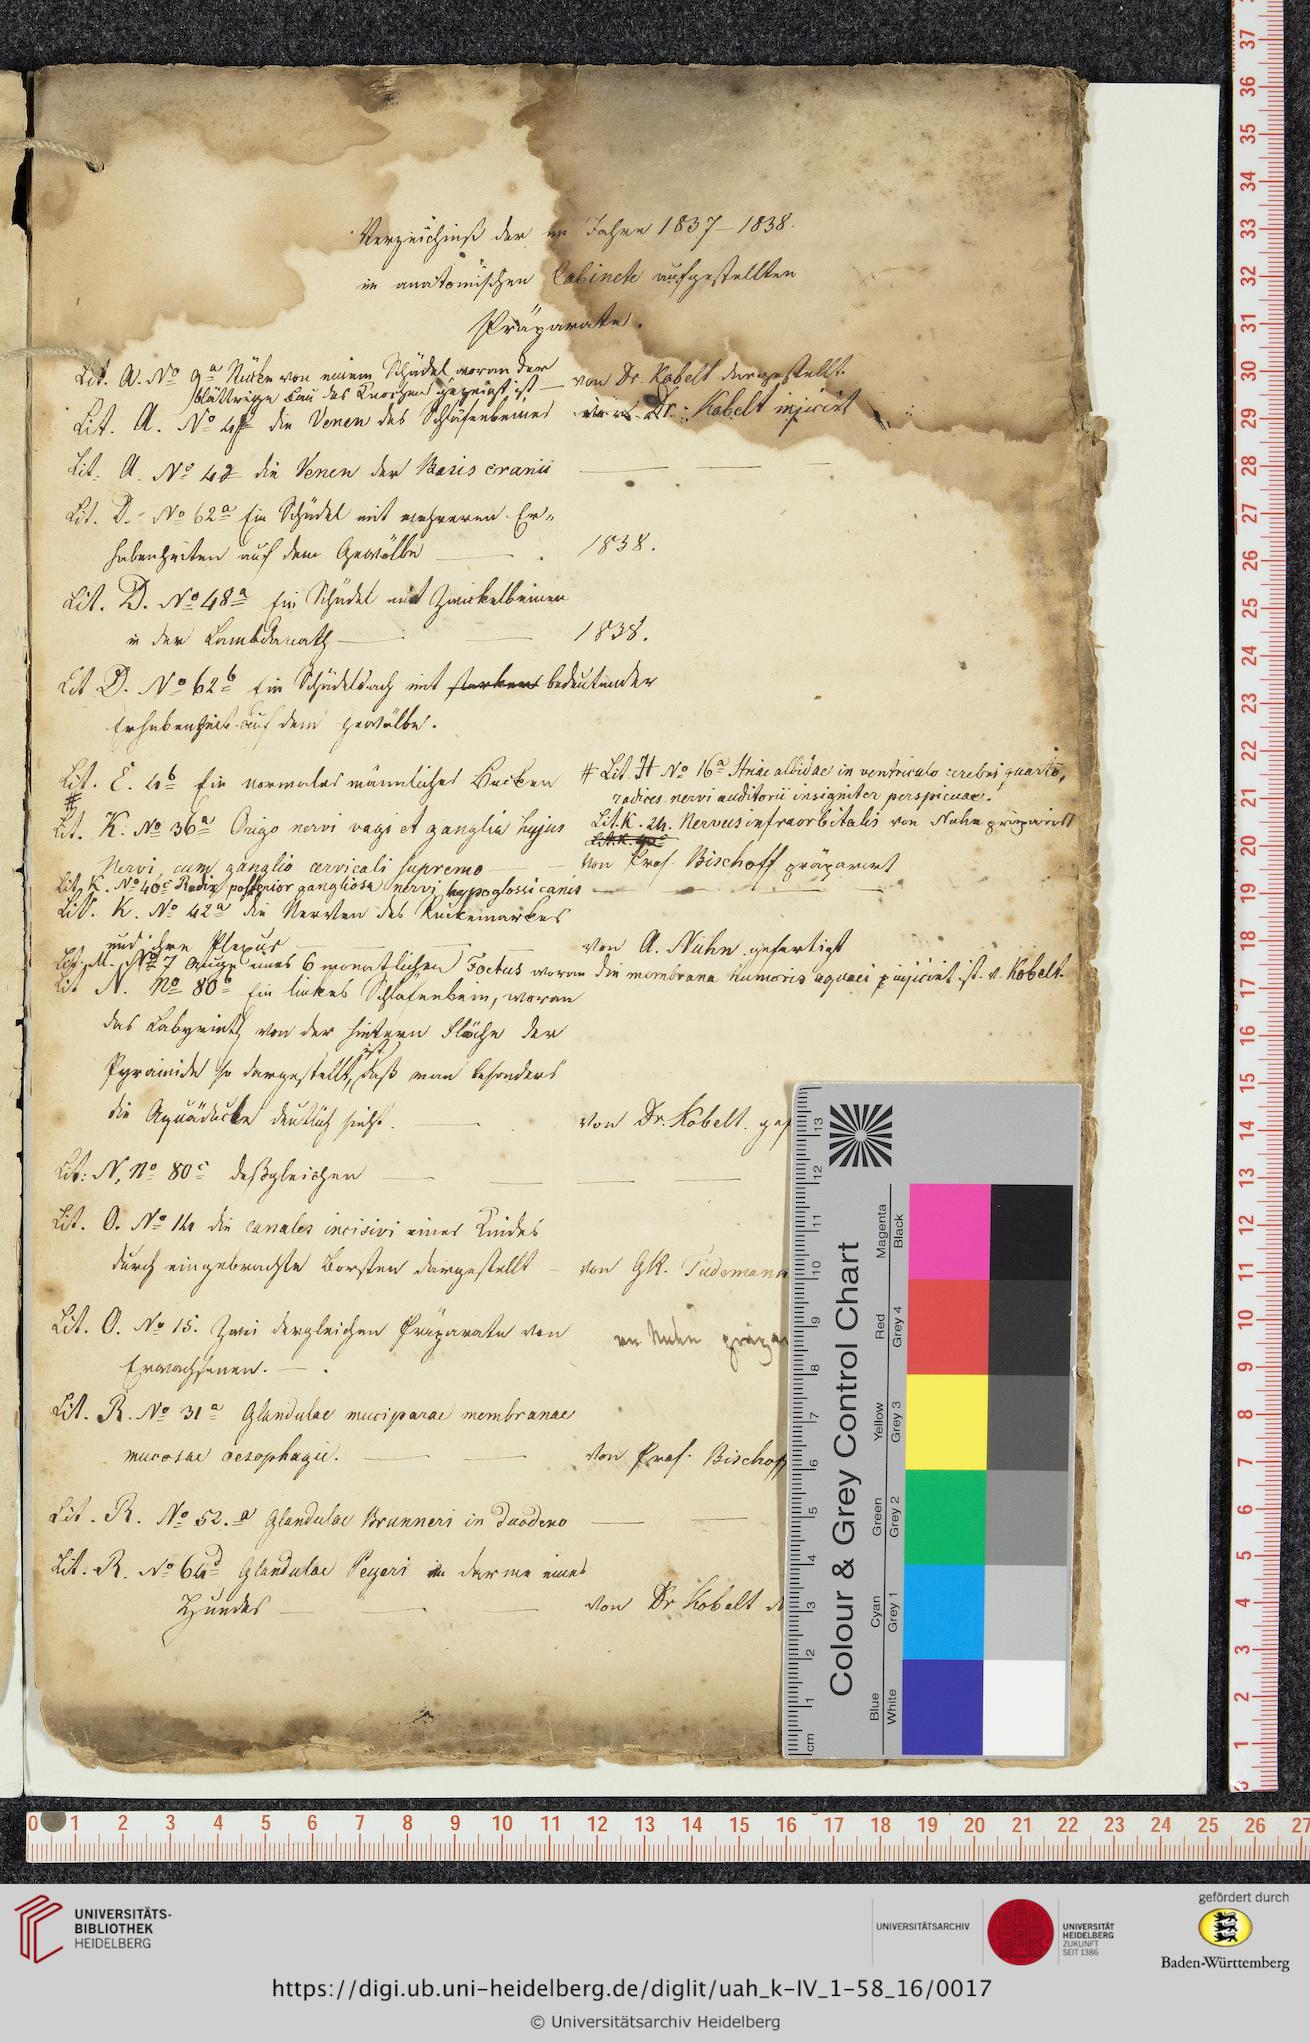 Verzeichniß der im Jahre 1837–1838.
im anatomischen Cabinete aufgestellten
Präparate.
Lit. A. No 9a von einem Schädel woran der
blättrige Bau des Knochen gezeigt ist — von Dr. Kobelt dargestellt.
Lit. A. No 41 die Venen des Schläfenbeines von Dr. Kobelt injicirt
Lit. A. No 42 die Venen der Basis cranii —
Lit. D. No 62a Ein Schädel mit mehreren Er-
habenheiten auf dem Gewölbe — 1838.
Lit. D. No 48a Ein Schädel mit Zwickelbeinen
in der Lambdanath — 1838.
Lit D. No 62b Ein Schädeldach mit starker bedeutender
Erhabenheit auf dem Gewölbe.
Lit. E. 4b Ein normales männliches Becken
# Lit. H No 16a Striae albidae in ventriculo cerebri quarto,
radices nervi auditorii insigniter perspicuae.
#
Lit. K. No 36a Origo nervi vagi et ganglia hujus
Lit. K. 24. Nervus infraorbitalis von Nuhn präparirt
Nervi, cum ganglio cervicali supremo — von Prof. Bischoff präparirt
Lit. K. No 40c Radix posterior gangliosa nervi hypoglossi canis —
Lit. K. No 42a die Nerven des Rückenmarkes
und ihre Plexus — von A. Nuhn gefertigt
Lit. M. No 7 Auge eines 6 monatlichen Foetus woran die membrana humoris aquaei injicirt ist. v. Kobelt.
Lit N. No 80b Ein linkes Schläfenbein, woran
das Labyrinth von der hintern Fläche der
Pyramide so dargestellt ist, daß man besonders
die Aquäducte deutlich sieht. — von Dr. Kobelt. gef
Lit: N, No 80c deßgleichen —
Lit. O. No 14 die canales incisivi eines Kindes
durch eingebrachte Borsten dargestellt — von GR. Tiedemann
Lit. O. No 15. Zwei dergleichen Präparate von
Erwachsenen. — von Nuhn präpar
Lit. R. No 31a Glandulae muciparae membranae
mucosae oesophagii. — von Prof. Bischoff
Lit. R. No 52.a Glandulae Brunneri in duodeno —
Lit. R. No 64d Glandulae Peyeri im Darme eines
Hundes — von Dr Kobelt
Colour & Grey Control Chart
Blue Cyan Green Yellow Red Magenta
White Grey 1 Grey 2 Grey 3 Grey 4 Black
cm 1 2 3 4 5 6 7 8 9 10 11 12 13
37 36 35 34 33 32 31 30 29 28 27 26 25 24 23 22 21 20 19 18 17 16 15 14 13 12 11 10 9 8 7 6 5 4 3 2 1 0
0 1 2 3 4 5 6 7 8 9 10 11 12 13 14 15 16 17 18 19 20 21 22 23 24 25 26 27
UNIVERSITÄTS-
BIBLIOTHEK
HEIDELBERG
UNIVERSITÄTSARCHIV
UNIVERSITÄT
HEIDELBERG
ZUKUNFT
SEIT 1386
gefördert durch
Baden-Württemberg
https://digi.ub.uni-heidelberg.de/diglit/uah_k-IV_1-58_16/0017
© Universitätsarchiv Heidelberg